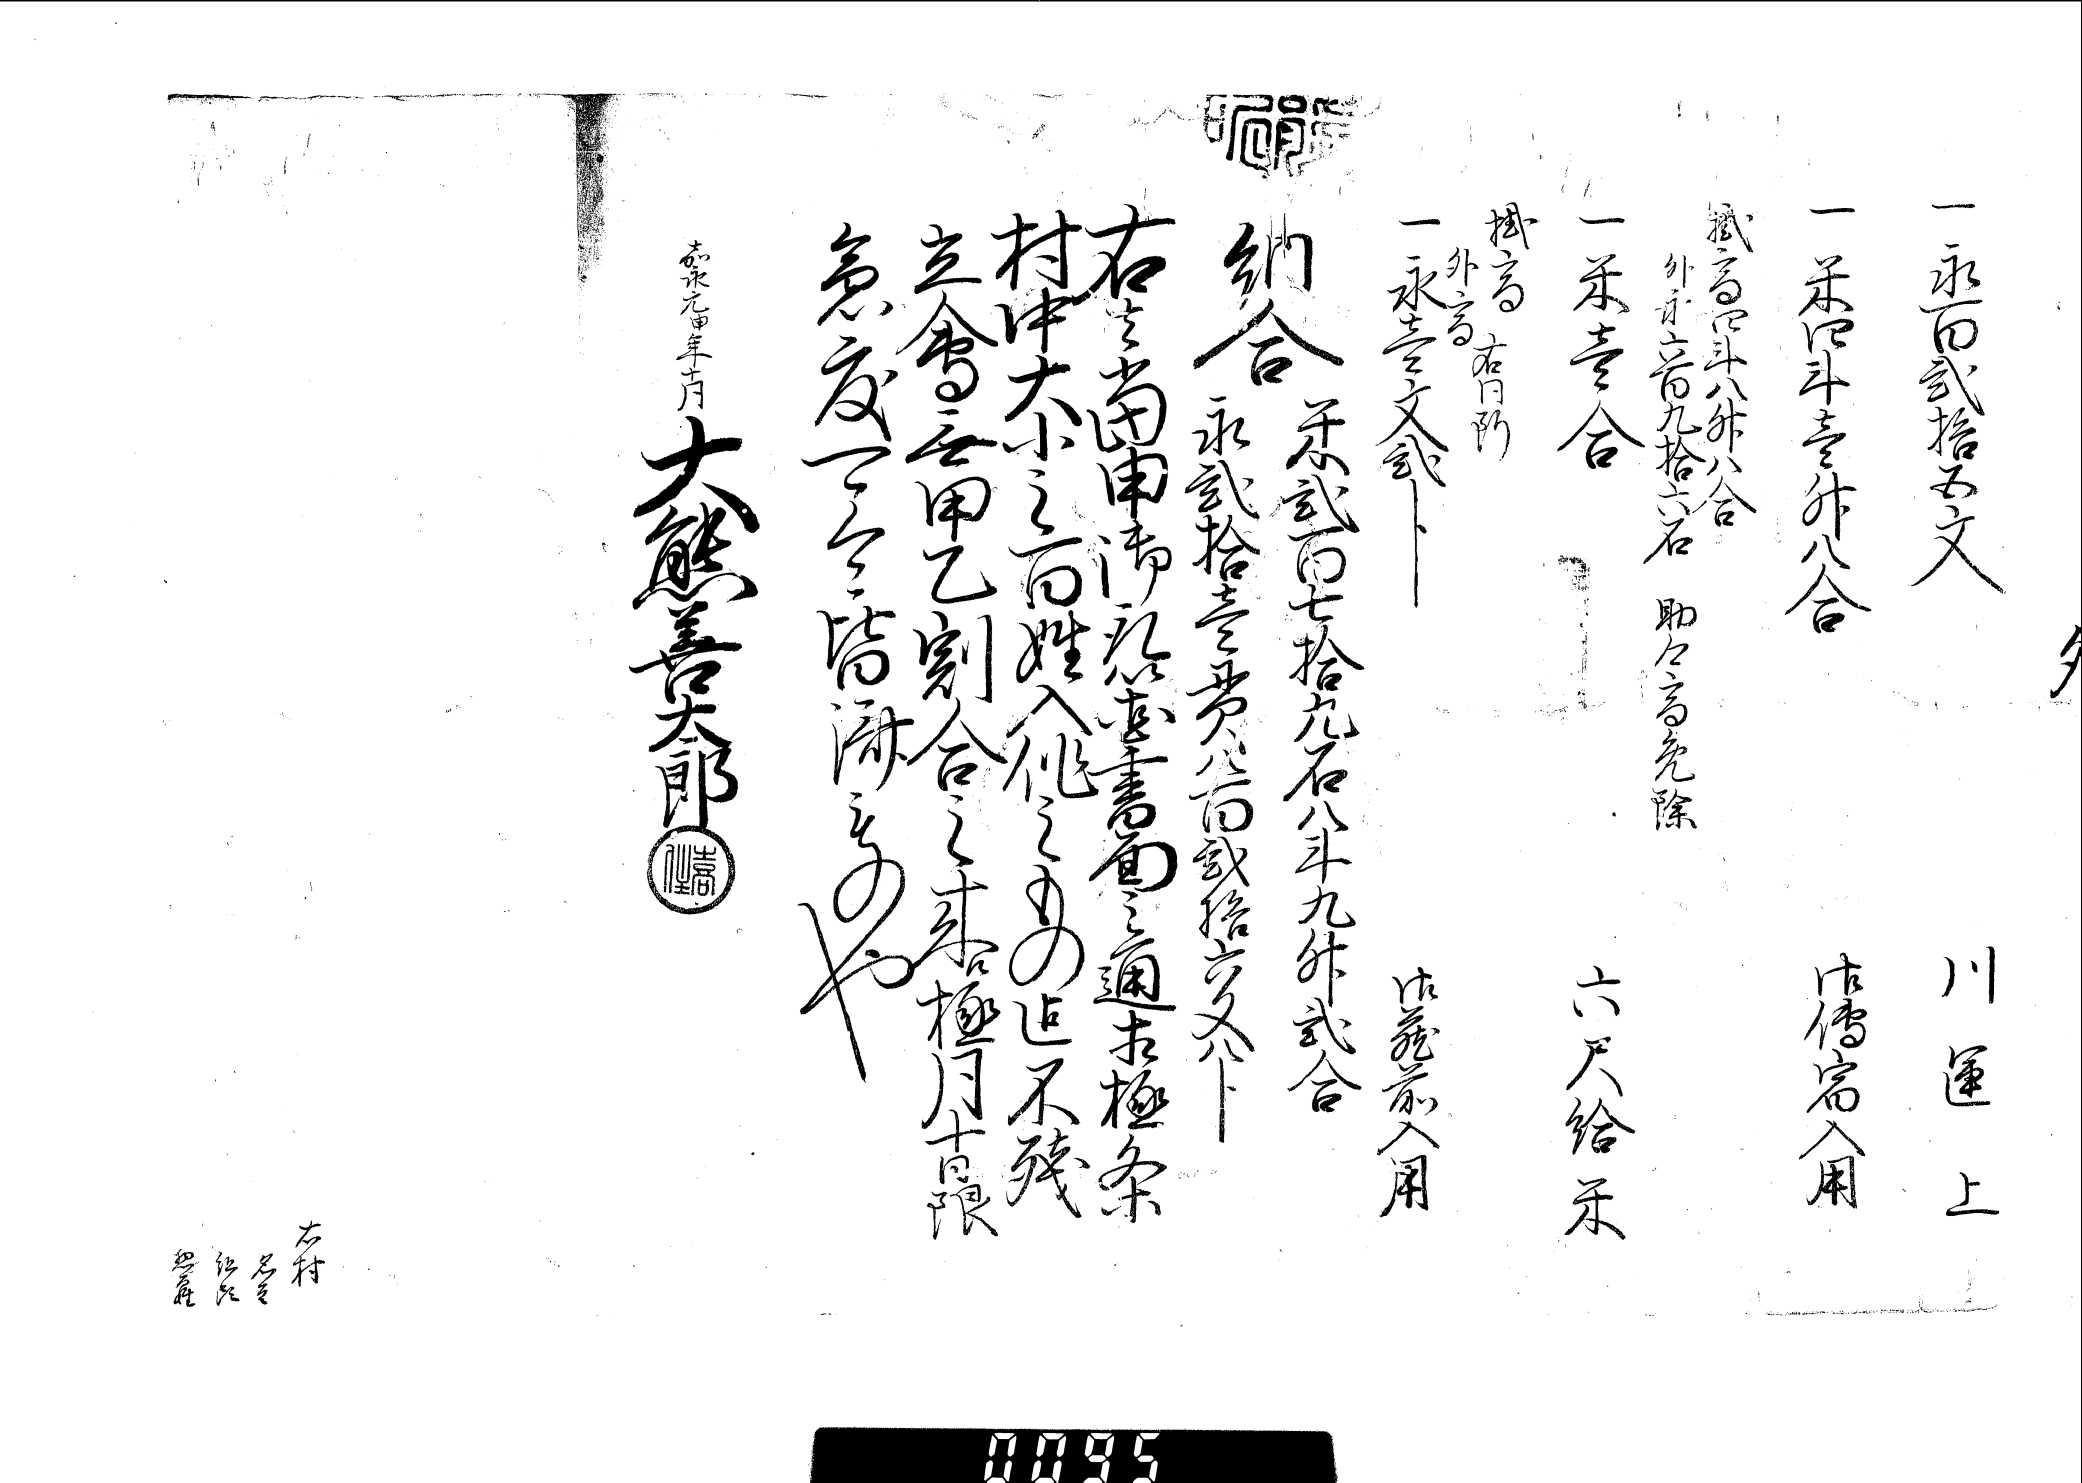 一永百弐拾五文 川運上
一米四斗壱升八合 御伝馬宿入用
掛高四斗八升八合
外高六百九拾六石 助郷高免除
一米壱合 六尺給米
掛高 右同断
外高
一永壱文弐分 御蔵前入用
納合
米弐百七拾九石八斗九升弐合
永弐拾壱貫八百弐拾六文八分
右者当申御取箇書面之通相極条
村中大小之百姓入作之もの迄不残
立会無甲乙割合之来ル極月十日限
急度可令皆済もの也
嘉永元申年十月 大熊善太郎
右村
名主
組頭
惣百姓
0095